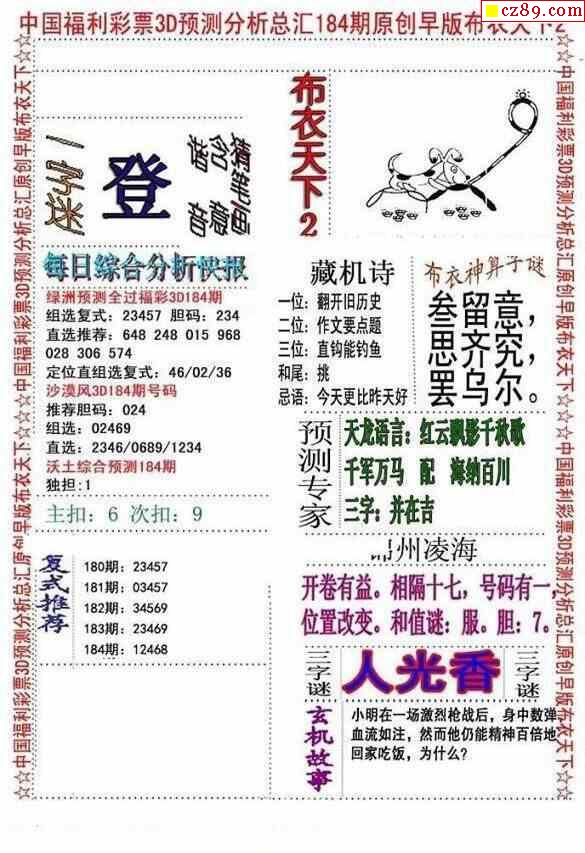 cz89.com
中国福利彩票3D预测分析总汇184期原创早版布衣天下2
☆☆中国福利彩票3D预测分析总汇原创早版布衣天下☆☆
一字迷
登
猜笔画
含意
谐音
布衣天下2
每日综合分析快报
绿洲预测全过福彩3D184期
组选复式：23457 胆码：234
直选推荐：648 248 015 968
028 306 574
定位直组选复式：46/02/36
沙漠风3D184期号码
推荐胆码：024
组选：02469
直选：2346/0689/1234
沃土综合预测184期
独担:1
主扣：6 次扣：9
藏机诗
一位：翻开旧历史
二位：作文要点题
三位：直钩能钓鱼
和尾：挑
忌语：今天更比昨天好
布衣神算子谜
叁留意，
思齐究，
罢乌尔。
预测专家
天龙语言：红云飘影千秋歌
千军万马 配 海纳百川
三字：并在吉
州凌海
开卷有益。相隔十七，号码有一
位置改变。和值谜：服。胆：7。
复式推荐
180期：23457
181期：03457
182期：34569
183期：23469
184期：12468
三字谜
人光香
三字谜
玄机故事
小明在一场激烈枪战后，身中数弹
血流如注，然而他仍能精神百倍地
回家吃饭，为什么？
☆☆中国福利彩票3D预测分析总汇原创早版布衣天下☆☆